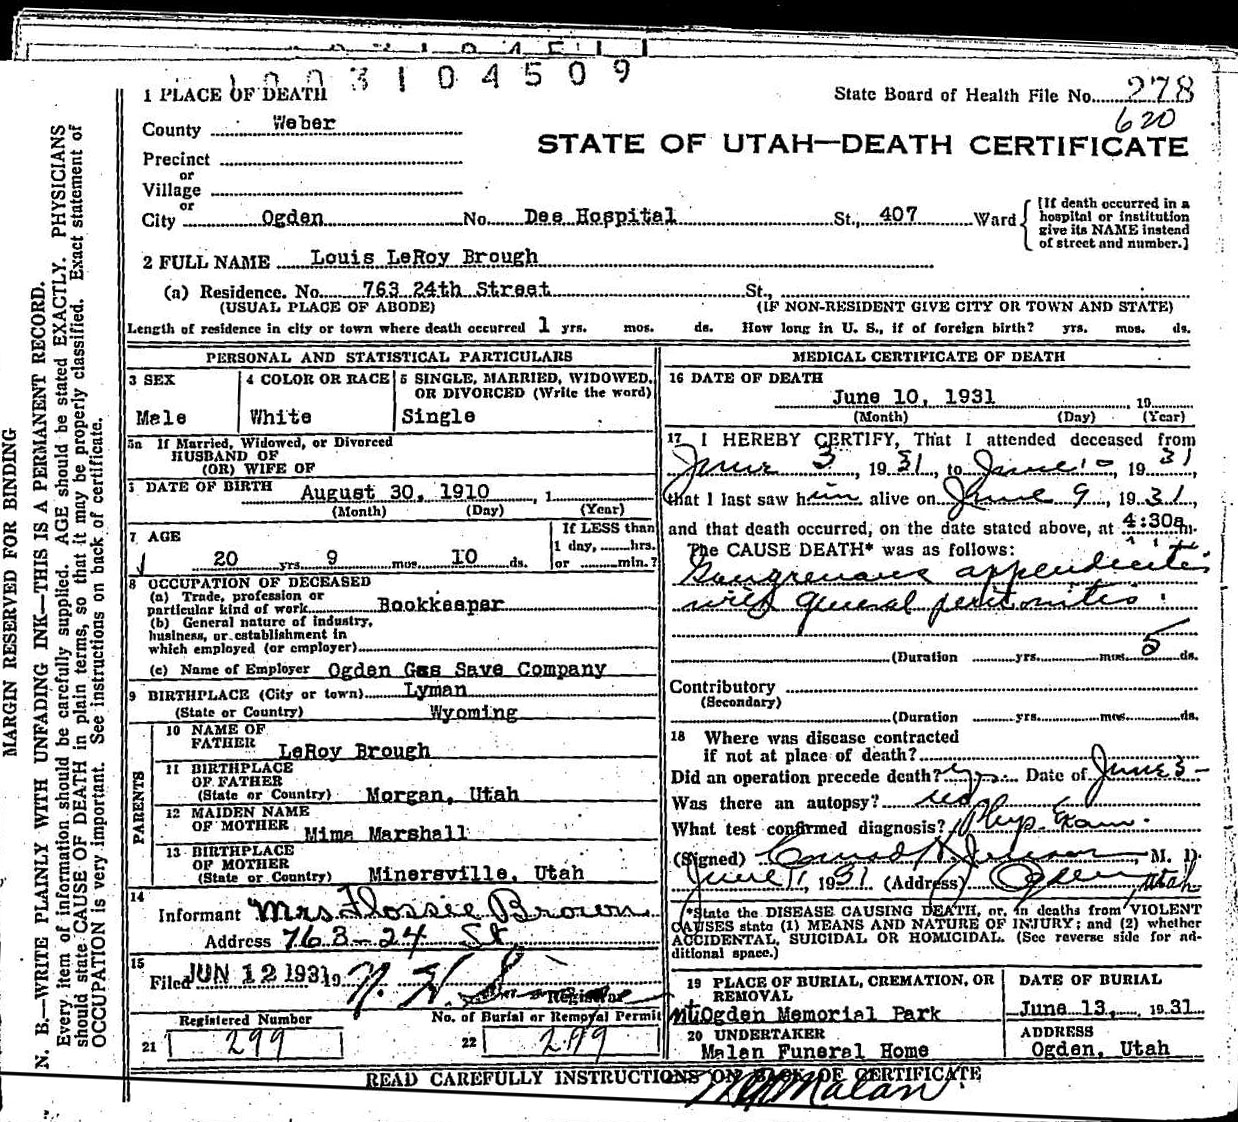 1003104509
1 PLACE OF DEATH
State Board of Health File No. 278
620
County Weber
STATE OF UTAH—DEATH CERTIFICATE
Precinct
or
Village
or
City Ogden No. Dee Hospital St., 407 Ward
[If death occurred in a
hospital or institution
give its NAME instead
of street and number.]
2 FULL NAME Louis LeRoy Brough
(a) Residence. No. 763 24th Street St.,
(USUAL PLACE OF ABODE) (IF NON-RESIDENT GIVE CITY OR TOWN AND STATE)
Length of residence in city or town where death occurred 1 yrs. mos. ds. How long in U. S., if of foreign birth? yrs. mos. ds.
PERSONAL AND STATISTICAL PARTICULARS
3 SEX
Male
4 COLOR OR RACE
White
5 SINGLE, MARRIED, WIDOWED,
OR DIVORCED (Write the word)
Single
5a If Married, Widowed, or Divorced
HUSBAND OF
(OR) WIFE OF
DATE OF BIRTH August 30, 1910 , 1
(Month) (Day) (Year)
7 AGE
20 yrs. 9 mos. 10 ds.
If LESS than
1 day, hrs.
or min.?
8 OCCUPATION OF DECEASED
(a) Trade, profession or
particular kind of work Bookkeeper
(b) General nature of industry,
business, or establishment in
which employed (or employer)
(c) Name of Employer Ogden Gas Save Company
9 BIRTHPLACE (City or town) Lyman
(State or Country) Wyoming
PARENTS
10 NAME OF
FATHER LeRoy Brough
11 BIRTHPLACE
OF FATHER
(State or Country) Morgan, Utah
12 MAIDEN NAME
OF MOTHER Mima Marshall
13 BIRTHPLACE
OF MOTHER
(State or Country) Minersville, Utah
14
Informant Mrs Flossie Brown
Address 763-24 St.
15
Filed JUN 12 1931 19
Registrar
Registered Number
21 299
No. of Burial or Removal Permit
22 299
MEDICAL CERTIFICATE OF DEATH
16 DATE OF DEATH
June 10, 1931 19
(Month) (Day) (Year)
17 I HEREBY CERTIFY, That I attended deceased from
June 3, 1931, to June 10, 1931
that I last saw him alive on June 9, 1931,
and that death occurred, on the date stated above, at 4:30a m.
The CAUSE DEATH* was as follows:
Gangrenous appendicitis
with general peritonitis.
(Duration yrs. mos. 5 ds.
Contributory
(Secondary)
(Duration yrs. mos. ds.
18 Where was disease contracted
if not at place of death?
Did an operation precede death? yes Date of June 3-
Was there an autopsy? no
What test confirmed diagnosis? Phys. Exam.
(Signed) Conrad H Jenson, M. D.
June 11, 1931 (Address) Ogden, Utah
*State the DISEASE CAUSING DEATH, or, in deaths from VIOLENT
CAUSES state (1) MEANS AND NATURE OF INJURY; and (2) whether
ACCIDENTAL, SUICIDAL OR HOMICIDAL. (See reverse side for ad-
ditional space.)
19 PLACE OF BURIAL, CREMATION, OR
REMOVAL
Mt. Ogden Memorial Park
DATE OF BURIAL
June 13, 1931
20 UNDERTAKER
Malan Funeral Home
ADDRESS
Ogden, Utah
READ CAREFULLY INSTRUCTIONS ON BACK OF CERTIFICATE
Malan
MARGIN RESERVED FOR BINDING
N. B.—WRITE PLAINLY WITH UNFADING INK—THIS IS A PERMANENT RECORD.
Every item of information should be carefully supplied. AGE should be stated EXACTLY. PHYSICIANS
should state CAUSE OF DEATH in plain terms, so that it may be properly classified. Exact statement of
OCCUPATION is very important. See instructions on back of certificate.